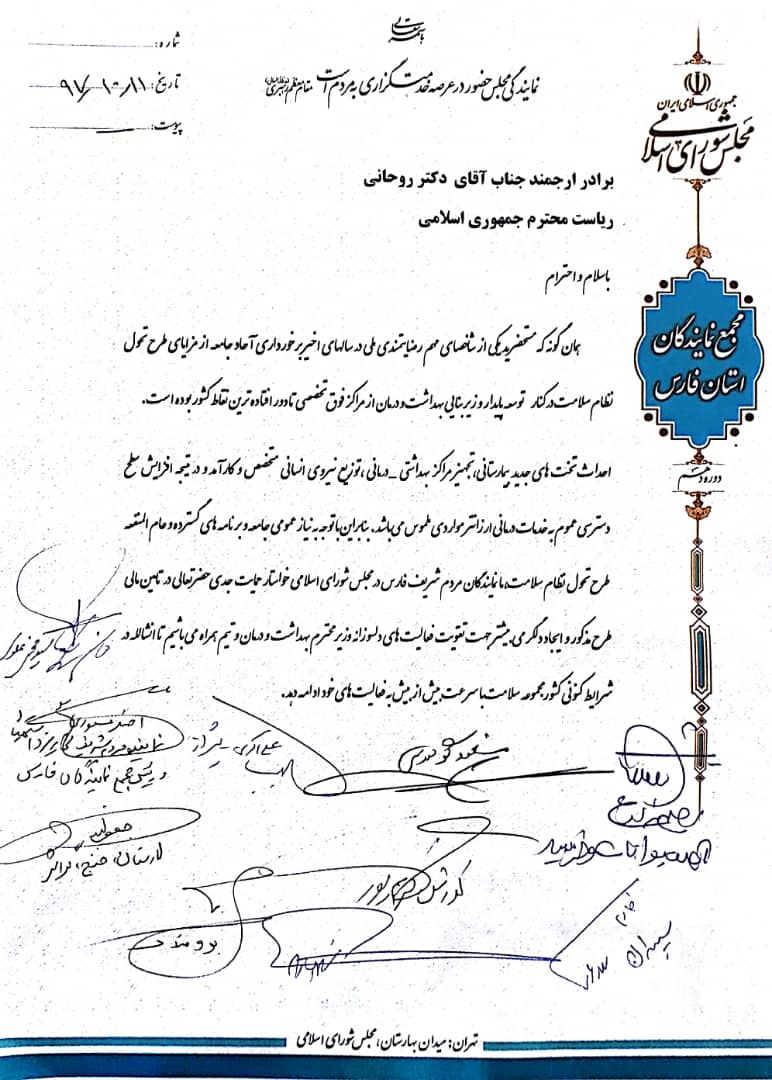 باسمه تعالی
شماره:
تاریخ: ۹۷/۱۰/۱۱
پیوست:
نمایندگی مجلس حضور در عرصه خدمتگزاری به مردم است مقام معظم رهبری
جمهوری اسلامی ایران
مجلس شورای اسلامی
مجمع نمایندگان
استان فارس
دوره دهم
برادر ارجمند جناب آقای دکتر روحانی
ریاست محترم جمهوری اسلامی
باسلام و احترام
همان گونه که مستحضرید یکی از شاخصهای مهم رضایتمندی ملی در سالهای اخیر برخورداری آحاد جامعه از مزایای طرح تحول
نظام سلامت در کنار توسعه پایدار و زیربنایی بهداشت و درمان از مراکز فوق تخصصی تا دور افتاده ترین نقاط کشور بوده است.
احداث تخت های جدید بیمارستانی، تجهیز مراکز بهداشتی _ درمانی، توزیع نیروی انسانی متخصص و کارآمد و در نتیجه افزایش سطح
دسترسی عموم به خدمات درمانی ارزانتر مواردی ملموس می باشد. بنابراین با توجه به نیاز عمومی جامعه و برنامه های گسترده و عام المنفعه
طرح تحول نظام سلامت، ما نمایندگان مردم شریف فارس در مجلس شورای اسلامی خواستار حمایت جدی حضرتعالی در تامین مالی
طرح مذکور و ایجاد دلگرمی بیشتر جهت تقویت فعالیت های دلسوزانه وزیر محترم بهداشت و درمان و تیم همراه می باشیم تا انشاالله در
شرایط کنونی کشور مجموعه سلامت با سرعت بیش از پیش به فعالیت های خود ادامه دهد.
علی اکبری شیراز
مسعود گودرزی
و رئیس مجمع نمایندگان فارس
لارستان، خنج، گراش
کورش کرم پور
برومندی
تهران: میدان بهارستان، مجلس شورای اسلامی